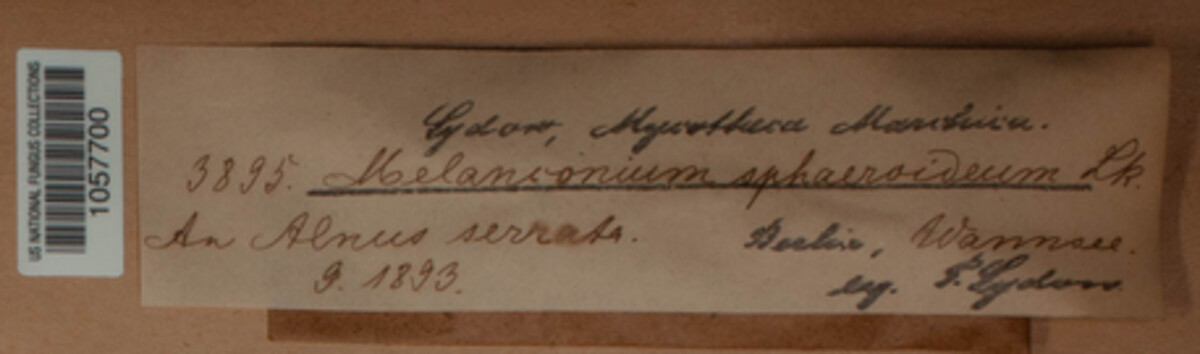 US NATIONAL FUNGUS COLLECTIONS
1057700
Sydow, Mycotheca Marchica.
3895. Melanconium sphaeroideum Lk.
An Alnus serrata. Berlin, Wannsee.
9. 1893. leg. P. Sydow.